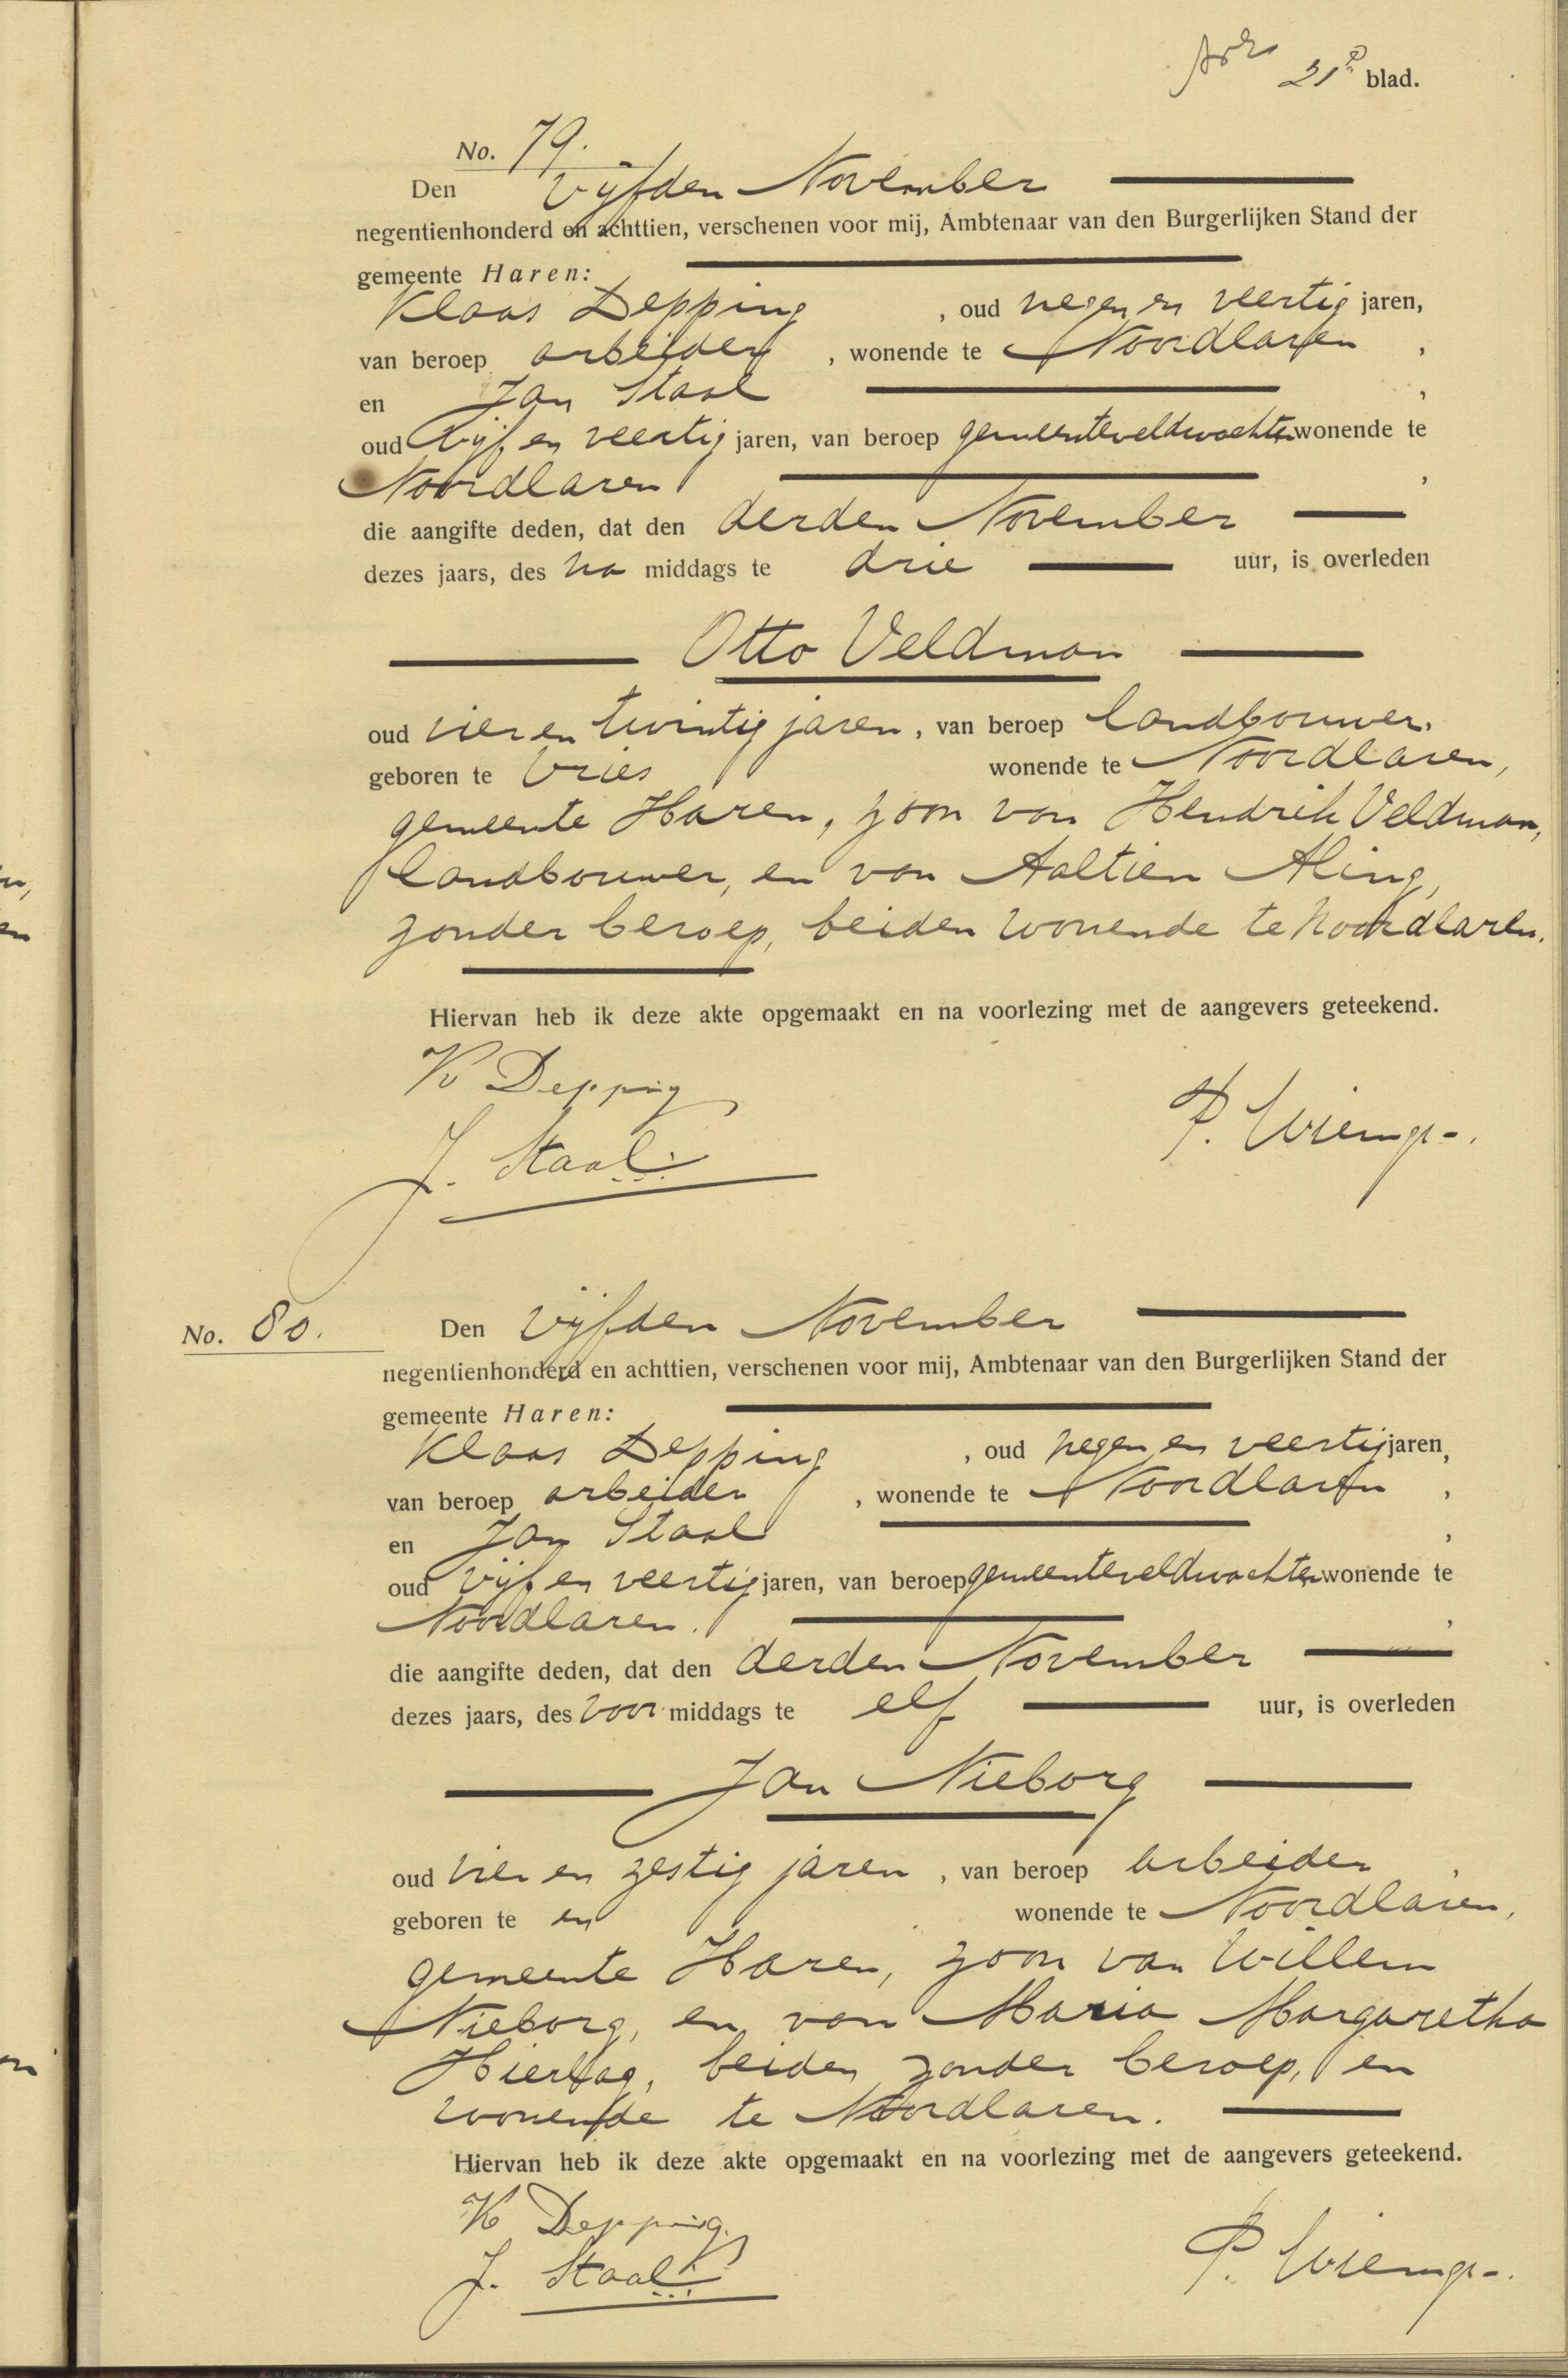 21e blad.
No. 79.
Den vijfden November
negentienhonderd en achttien, verschenen voor mij, Ambtenaar van den Burgerlijken Stand der
gemeente Haren:
Klaas Depping , oud negen en veertig jaren,
van beroep arbeider , wonende te Noordlaren ,
en Jan Staal ,
oud vijf en veertig jaren, van beroep gemeenteveldwachter wonende te
Noordlaren ,
die aangifte deden, dat den derden November
dezes jaars, des na middags te drie uur, is overleden
Otto Veldman
oud vier en twintig jaren, van beroep landbouwer,
geboren te Vries wonende te Noordlaren,
gemeente Haren, zoon van Hendrik Veldman,
landbouwer, en van Aaltien Aling,
zonder beroep, beiden wonende te Noordlaren.
Hiervan heb ik deze akte opgemaakt en na voorlezing met de aangevers geteekend.
K Depping
J. Staal
P.
No. 80.
Den vijfden November
negentienhonderd en achttien, verschenen voor mij, Ambtenaar van den Burgerlijken Stand der
gemeente Haren:
Klaas Depping , oud negen en veertig jaren,
van beroep arbeider , wonende te Noordlaren ,
en Jan Staal ,
oud vijf en veertig jaren, van beroep gemeenteveldwachter wonende te
Noordlaren. ,
die aangifte deden, dat den derden November
dezes jaars, des voor middags te elf uur, is overleden
Jan Nieborg
oud vier en zestig jaren , van beroep arbeider ,
geboren te en wonende te Noordlaren,
gemeente Haren, zoon van Willem
Nieborg, en van Maria Margaretha
beiden zonder beroep, en
wonende te Noordlaren.
Hiervan heb ik deze akte opgemaakt en na voorlezing met de aangevers geteekend.
K Depping
J. Staal
P.